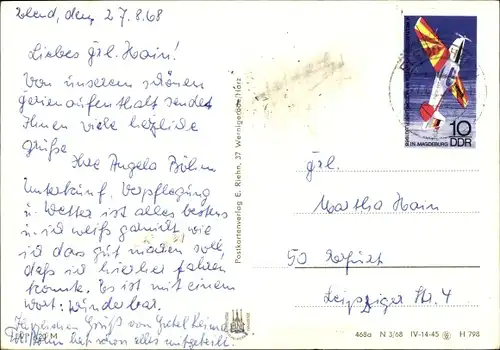 den 27.8.68
Liebes Frl. Hain!
Von unserem schönen
Ferienaufenthalt sendet
Ihnen viele herzliche
Grüße
Ihre Angela Böhm
Unterkunf, Verpflegung
u. Wetter ist alles bestens
u. ich weiß garnicht wie
ich das gut machen soll,
daß ich hierher fahren
konnte. Es ist mit einem
Wort: wunderbar.
Herzlichen Gruß von
hat schon alles mitgeteilt.
Postkartenverlag E. Riehn, 37 Wernigerode/Harz
10
DDR
MAGDEBURG
Frl.
Martha Hain
50 Erfurt
Leipziger Str. 4
468a N 3/68 IV-14-45 H 798